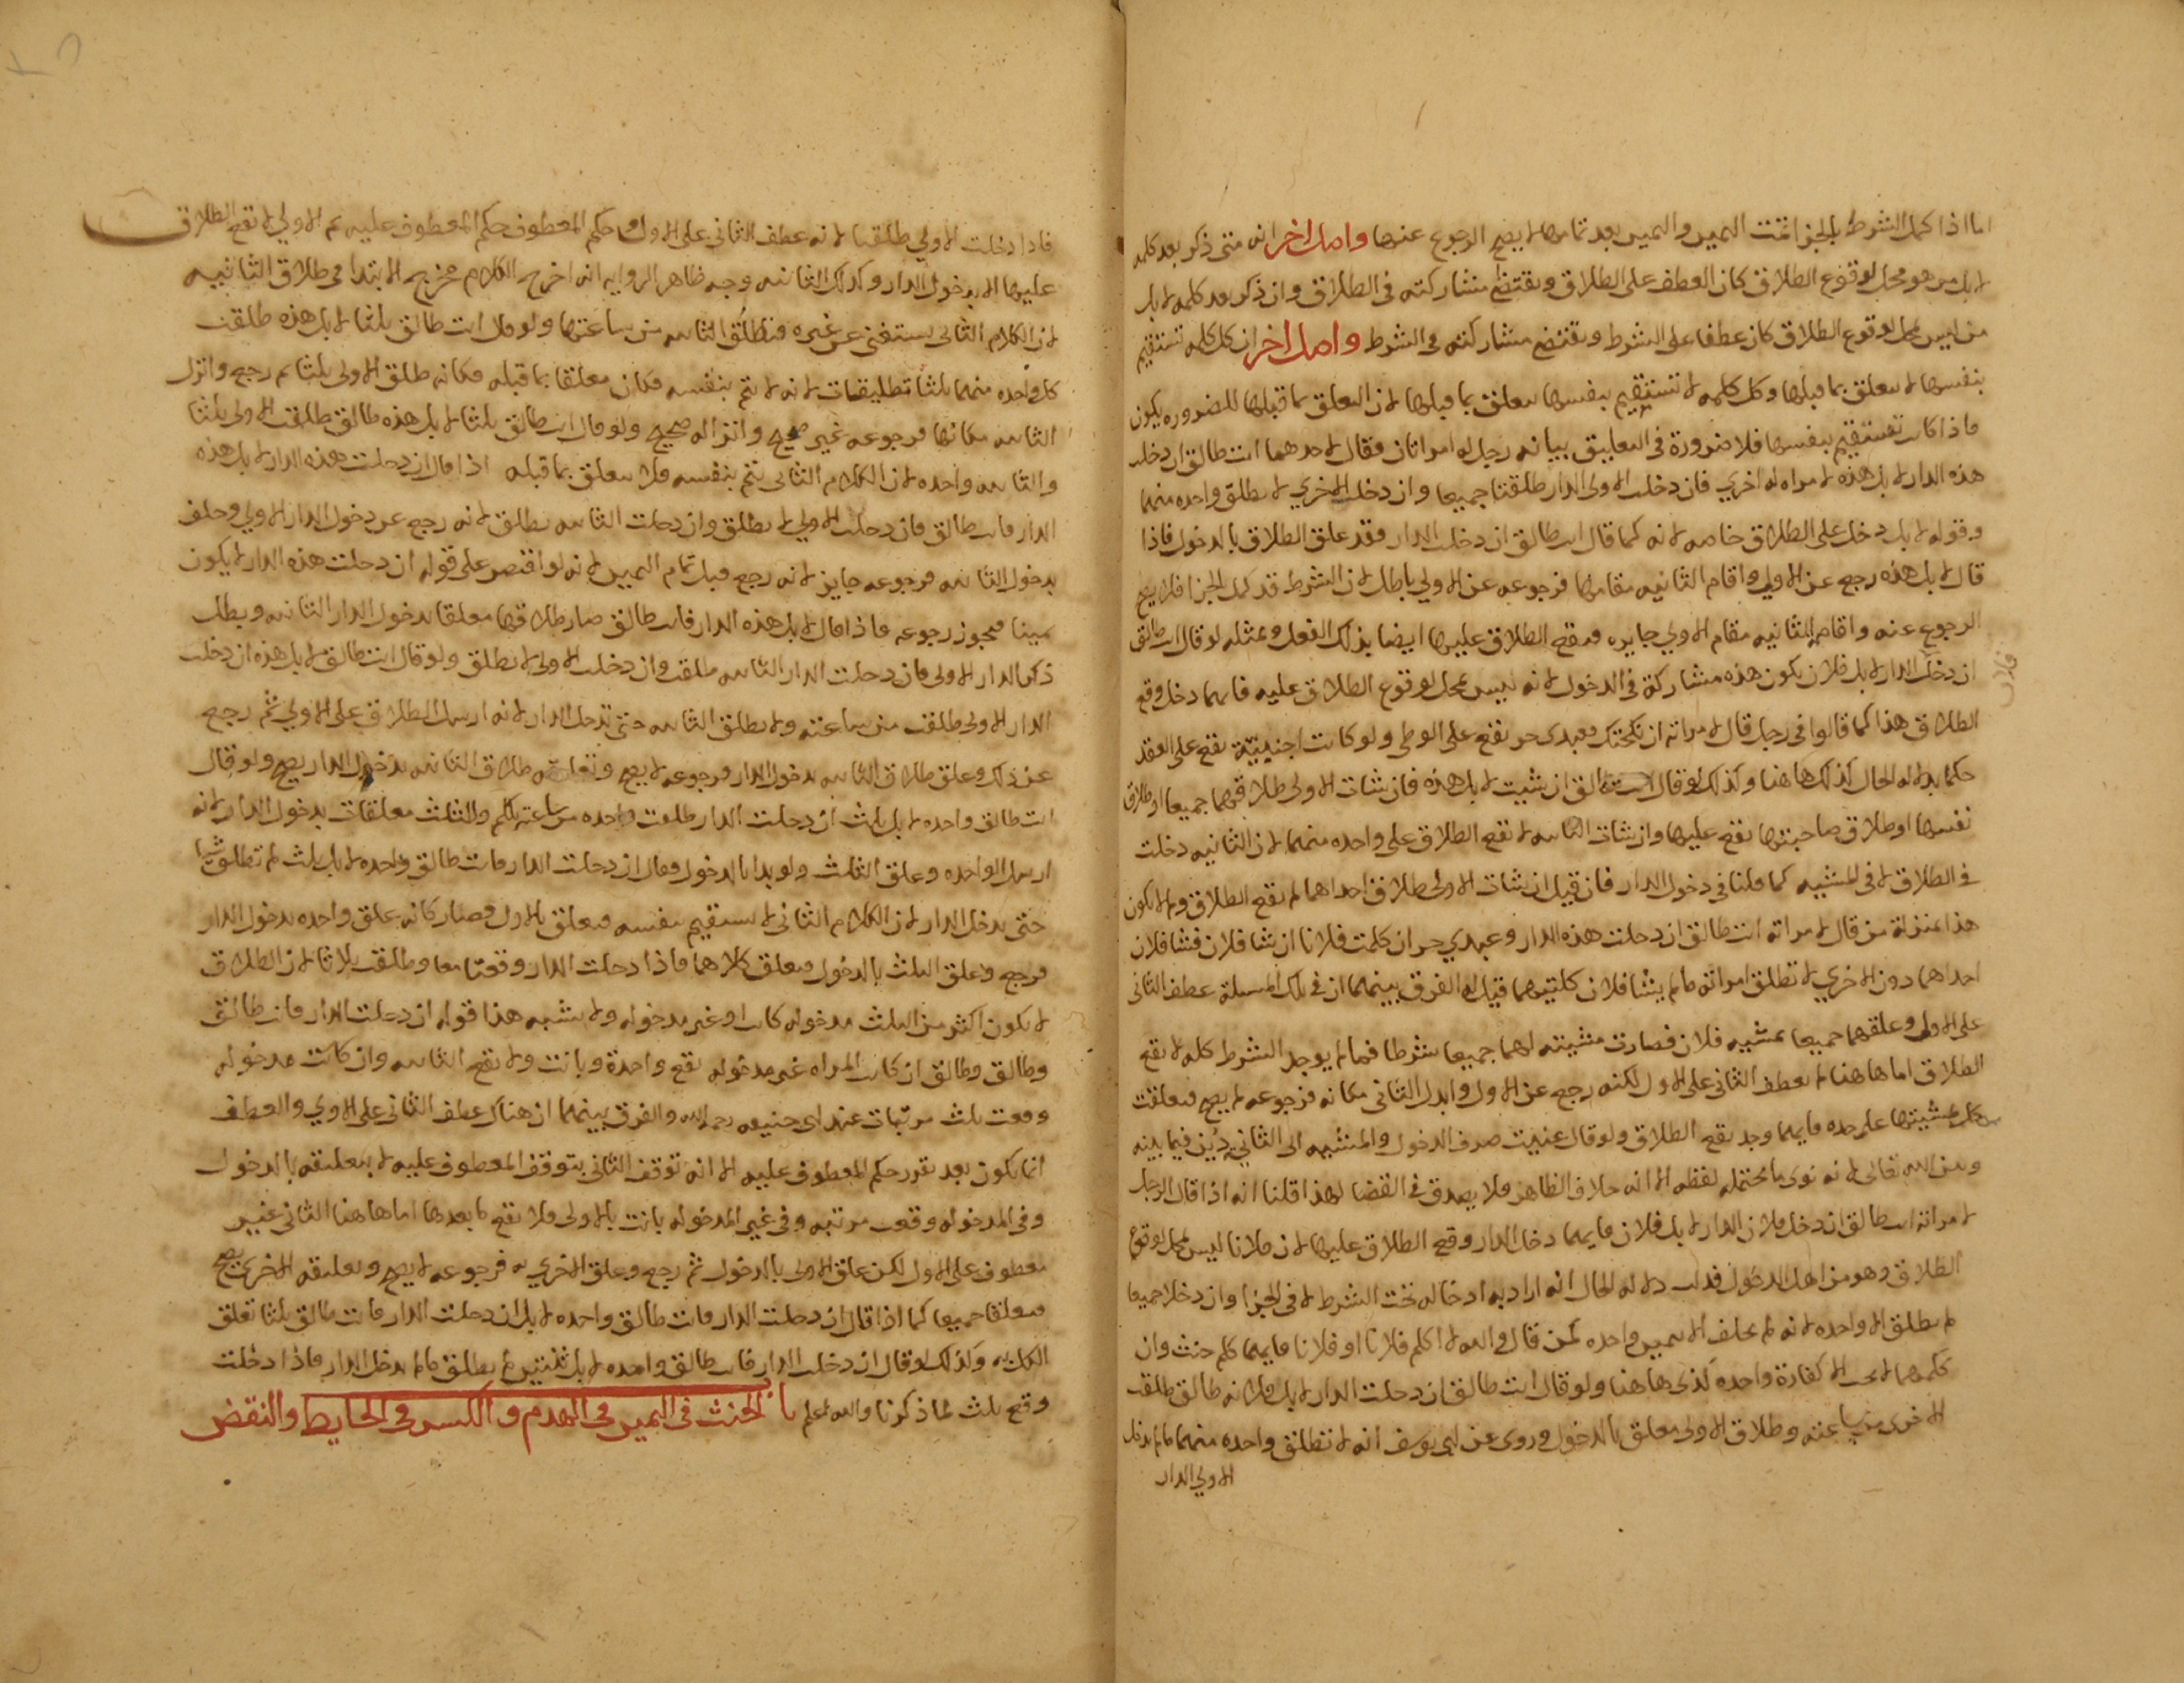 اما اذا كمل الشرط بالجزا تمت اليمين واليمين بعد تمامها لا يصح الرجوع عنها واصل اخر انه متى ذكر بعد كلمه
لا بل من هو محل لوقوع الطلاق كان العطف على الطلاق ويقتضي مشاركته في الطلاق وان ذكر بعد كلمه لا بل
من ليس بمحل لوقوع الطلاق كان عطفا على الشرط ويقتضي مشاركته في الشرط واصل اخر ان كل كلمه تستقيم
بنفسها لا تتعلق بما قبلها وكل كلمه لا تستقيم بنفسها تتعلق بما قبلها لان التعلق بما قبلها للضروره يكون
فاذا كانت تستقيم بنفسها فلا ضرورة في التعليق بيانه رجل له امراتان فقال لاحدهما انت طالق ان دخلت
هذه الدار لا بل هذه لامراه له اخري فان دخلت الاولى الدار طلقتا جميعا وان دخلت الاخري لا تطلق واحده منهما
وقوله لا بل دخل على الطلاق خاصه لانه كما قال انت طالق ان دخلت الدار فقد علق الطلاق بالدخول فاذا
قال لا بل هذه رجع عن الاولى واقام الثانيه مقامها فرجوعه عن الاولي باطل لان الشرط قد كمل بالجزا فلا يصح
الرجوع عنه واقامه الثانيه مقام الاولي جايره فيقع الطلاق عليها ايضا بذلك الفعل وبمثله لو قال انت طالق
ان دخلت الدار لا بل فلان يكون هذه مشاركة في الدخول لانه ليس بمحل لوقوع الطلاق عليه فايهما دخل وقع
فلان
الطلاق هذا كما قالوا في رجل قال لامراته ان نكحتك فعبدى حر يقع على الوطى ولو كانت اجنبيّة يقع على العقد
حكما بدلاله الحال كذلك هاهنا وكذلك لو قال انت طالق ان شيت لا بل هذه فان شات الاولى طلاقهما جميعا او طلاق
نفسها او طلاق صاحبتها يقع عليها وان شات الثانيه لا يقع الطلاق على واحده منهما لان الثانيه دخلت
في الطلاق لا في المشيه كما قلنا في دخول الدار فان قيل ان شات الاولى طلاق احداهما لم يقع الطلاق ولم لا يكون
هذا بمنزلة من قال لامراته انت طالق ان دخلت هذه الدار وعبدي حر ان كلمت فلانا ان شا فلان فشا فلان
احداهما دون الاخري لا تطلق امراته ما لم يشا فلان كلتيهما قيل له الفرق بينهما ان في تلك المسيلة عطف الثانى
على الاولى وعلقهما جميعا بمشيه فلان فصارت مشيته لهما جميعا شرطا فما لم يوجد الشرط كله لا يقع
الطلاق اما هاهنا لم يعطف الثانى على الاول لكنه رجع عن الاول وابدل الثانى مكانه فرجوعه لم يصح فتعلقت
كل بمشيتها على حده فايهما وجد يقع الطلاق ولو قال عنيت صرف الدخول والمشيه الى الثاني يُديّن فيما بينه
وبين الله تعالى لانه نوى ما يحتمله لفظه الا انه خلاف الظاهر فلا يصدق في القضا لهذا قلنا انه اذا قال الرجل
لامراته انت طالق ان دخل فلان الدار لا بل فلان فايهما دخل الدار وقع الطلاق عليها لان فلانا ليس بمحل لوقوع
الطلاق وهو من اهل الدخول فدلت دلاله الحال انه اراد به ادخاله تحت الشرط لا في الجزا وان دخلا جميعا
لم تطلق الا واحده لانه لم يحلف الا بيمين واحده كمن قال والله لا اكلم فلانا او فلانا فايهما كلم حنث وان
كلمهما لا يجب الا كفارة واحدة كذى هاهنا ولو قال انت طالق ان دخلت الدار لا بل فلانه طالق طلقت
الاخرى من ساعته وطلاق الاولى معلق بالدخول وروى عن ابي يوسف انه لا تطلق واحده منهما ما لم تدخل
الاولي الدار
فاذا دخلت الاولي طلقتا لانه عطف الثانى على الاول وحكم المعطوف حكم المعطوف عليه ثم الاولي لا يقع الطلاق
عليها الا بدخول الدار وكذلك الثانيه وجه ظاهر الروايه انه اخرج الكلام مخرج الابتدا في طلاق الثانيه
لان الكلام الثانى يستغنى عن غيره فتطلق الثانيه من ساعتها ولو قال انت طالق ثلثا لا بل هذه طلقت
كل واحده منهما ثلثا تطليقات لانه لا يتم بنفسه فكان معلقا بما قبله فكانه طلق الاولى ثلثا ثم رجع وانزل
الثانيه مكانها فرجوعه غير صحيح وانزاله صحيح ولو قال انت طالق ثلثا لا بل هذه طالق طلقت الاولى ثلثا
والثانيه واحده لان الكلام الثانى يتم بنفسه فلا يتعلق بما قبله اذا قال ان دخلت هذه الدار لا بل هذه
الدار فانت طالق فان دخلت الاولي لا تطلق وان دخلت الثانيه تطلق لانه رجع عن دخول الدار الاولي وحلف
بدخول الثانيه فرجوعه جايز لانه رجع قبل تمام اليمين لانه لو اقتصر على قوله ان دخلت هذه الدار لا يكون
يمينا فيجوز رجوعه فاذا قال لا بل هذه الدار فانت طالق صار طلاقها معلقا بدخول الدار الثانيه وبطل
ذكر الدار الاولى فان دخلت الدار الثانيه طلقت وان دخلت الاولى لا تطلق ولو قال انت طالق لا بل هذه ان دخلت
الدار الاولى طلقت من ساعته ولا تطلق الثانيه حتى تدخل الدار لانه ارسل الطلاق على الاولي ثم رجع
عن ذلك وعلق طلاق الثانيه بدخول الدار فرجوعه لا يصح وتعليقه طلاق الثانيه بدخول الدار يصح ولو قال
انت طالق واحده لا بل ثلث ان دخلت الدار طلقت واحده من ساعته والثلث معلقات بدخول الدار لانه
ارسل الواحده وعلق الثلث ولو بدا بالدخول وقال ان دخلت الدار فانت طالق واحده لا بل ثلث لم تطلق شيا
حتى تدخل الدار لان الكلام الثانى لا يستقيم بنفسه فيعلق بالاول وصار كانه علق واحده بدخول الدار
فرجع وعلق الثلث بالدخول فتعلق كلاهما فاذا دخلت الدار وقعتا معا وطلقت ثلاثا لان الطلاق
لا يكون اكثر من الثلث مدخوله كانت او غير مدخوله ولا يشبه هذا قوله ان دخلت الدار فانت طالق
وطالق وطالق ان كانت المراه غير مدخوله يقع واحدة وبانت ولا يقع الثانيه وان كانت مدخوله
وقعت ثلث مرتبات عند ابى حنيفه رحمه الله والفرق بينهما ان هناك عطف الثانى على الاولي والعطف
انما يكون بعد تقرر حكم المعطوف عليه الا انه توقف الثانى بتوقف المعطوف عليه لا بتعليقه بالدخول
وفي المدخوله وقعت مرتبه وفي غير المدخوله بانت بالاولى فلا يقع ما بعدها اما هاهنا الثانى غير
معطوف على الاول لكن علق الاولى بالدخول ثم رجع وعلق الاخرى به فرجوعه لا يصح وتعليقه الاخرى يصح
فتعلقا جميعا كما اذا قال ان دخلت الدار فانت طالق واحده لا بل ان دخلت الدار فانت طالق ثلثا تعلق
الكل به وكذلك لو قال ان دخلت الدار فانت طالق واحده لا بل ثنتين لم تطلق ما لم تدخل الدار فاذا دخلت
وقع ثلث لما ذكرنا والله اعلم باب الحنث في اليمين في الهدم والكسر في الحايط والنقض